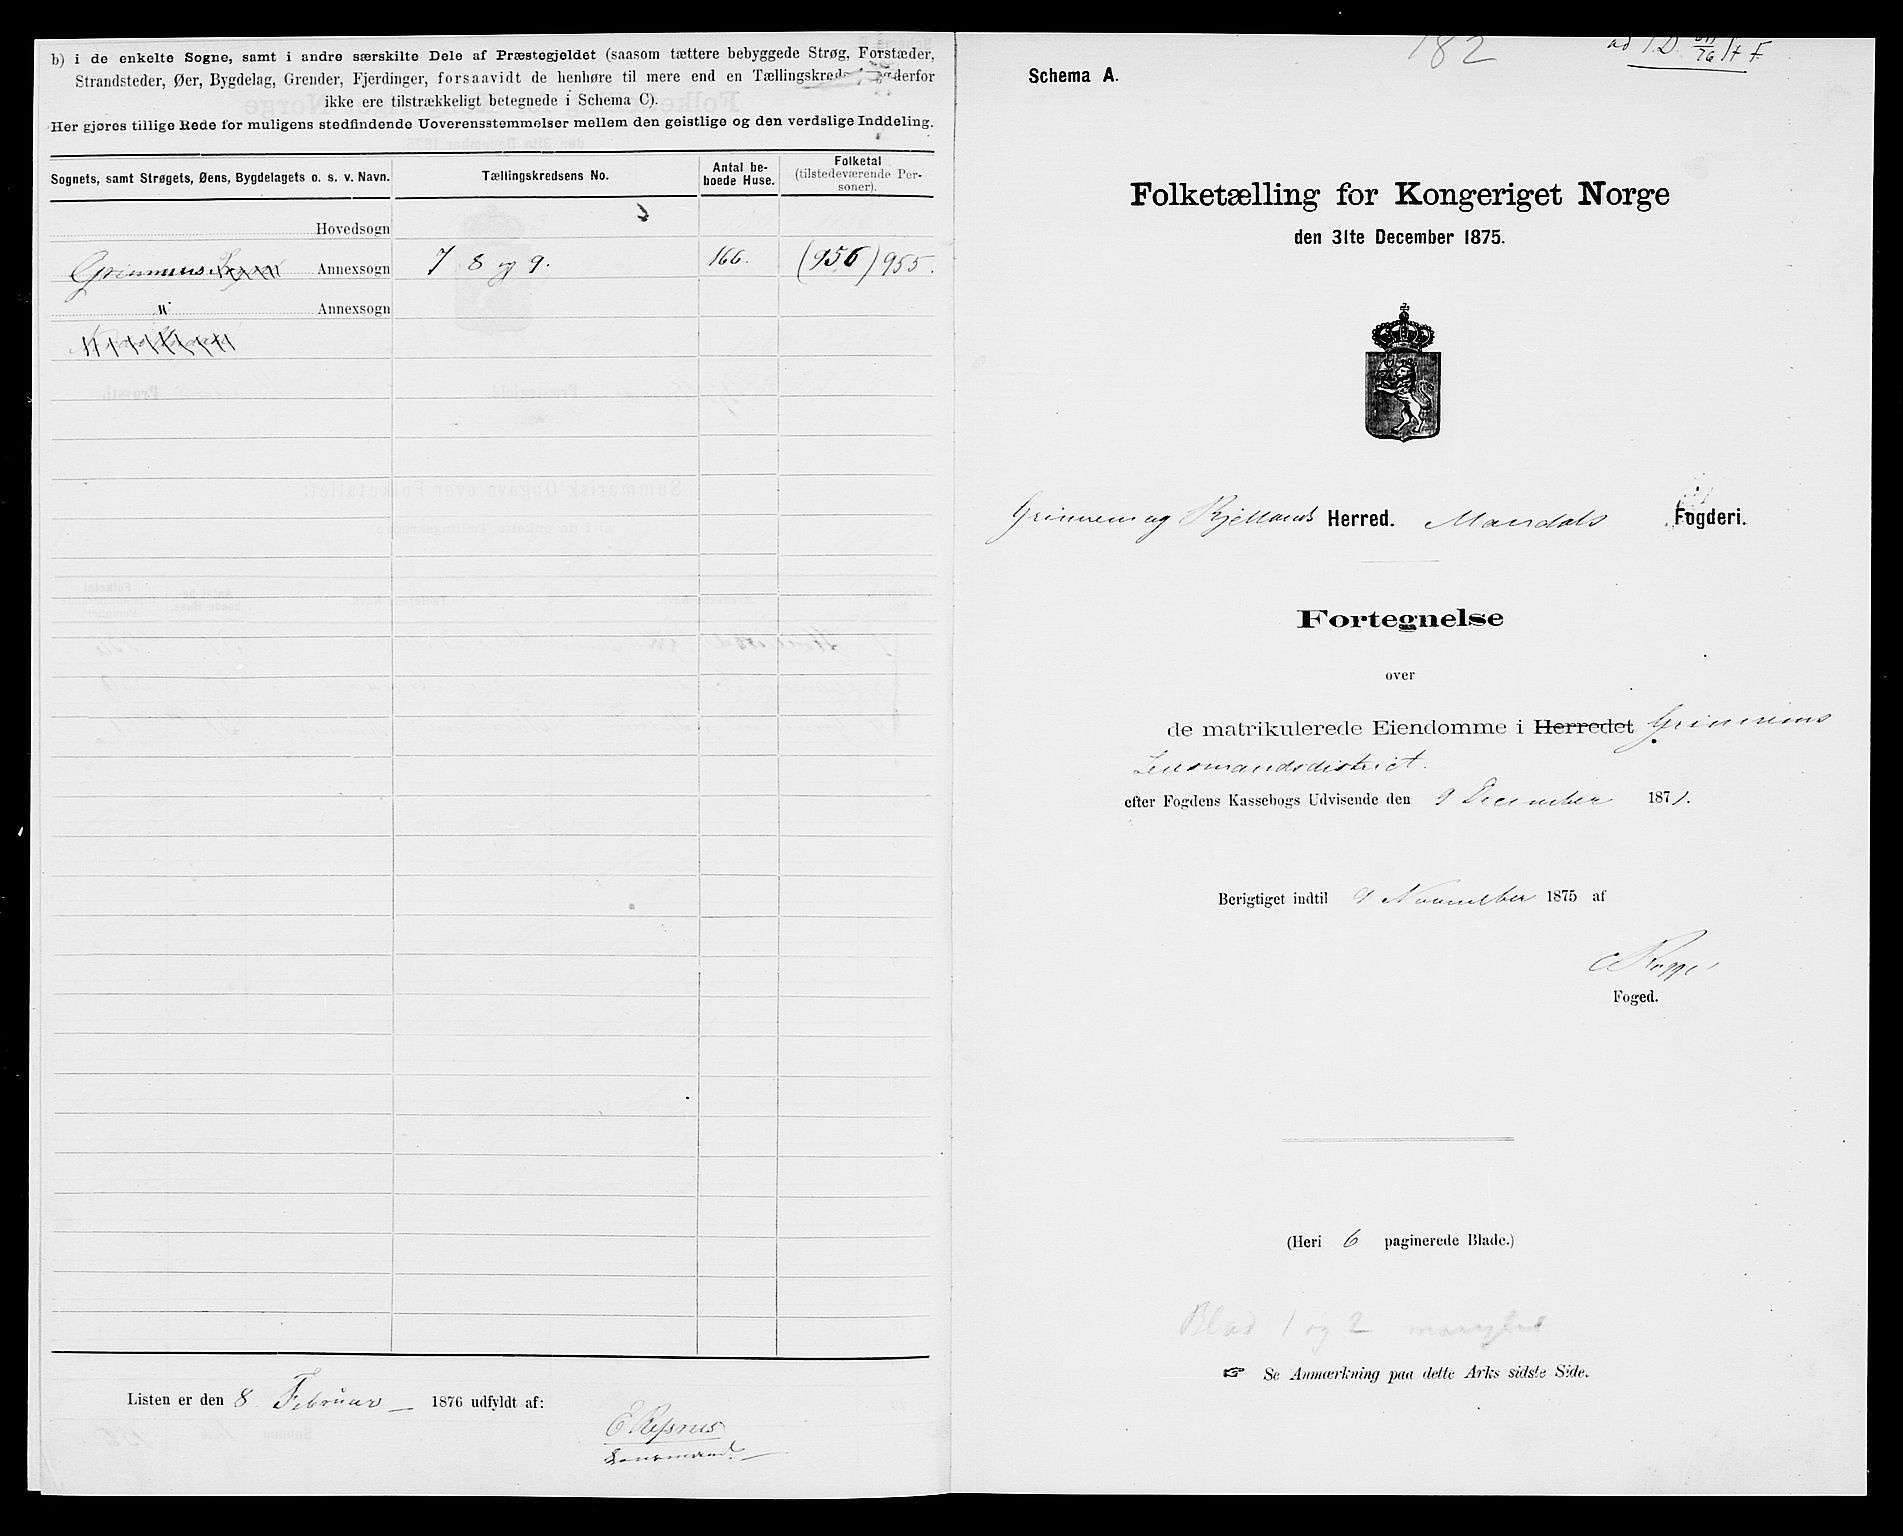 b) i de enkelte Sogne, samt i andre særskilte Dele af Præstegjeldet (saasom tættere bebyggede Strøg, Forstæder,
Strandsteder, Øer, Bygdelag, Grender, Fjerdinger, forsaavidt de henhøre til mere end en Tællingskreds
ikke ere tilstrækkeligt betegnede i Schema C).
Her gjøres tillige Rede for muligens stedfindende Uoverensstemmelser mellem den geistlige og den verdslige Inddeling.
Sognets, samt Strøgets, Øens, Bygdelagets o. s. v. Navn. Tællingskredsens No. Antal be-
boede Huse. Folketal
(tilstedeværende Per-
soner).
Hovedsogn
Grimnes Annexsogn 7 8 og 9. 166. (956) 955.
" Annexsogn
Listen er den 8. Februar 1876 udfyldt af:
Lensmand.
182
Schema A.
Folketælling for Kongeriget Norge
den 31te December 1875.
Grinnem og Bjellands Herred. Mandals Fogderi.
Fortegnelse
over
de matrikulerede Eiendomme i Herredet Grinnems
Lensmandsdistrict.
efter Fogdens Kassebogs Udvisende den 9 December 1871.
Berigtiget indtil 9 November 1875 af
Foged.
(Heri 6 paginerede Blade.)
Blad 1 og 2 mangler
☞ Se Anmærkning paa dette Arks sidste Side.